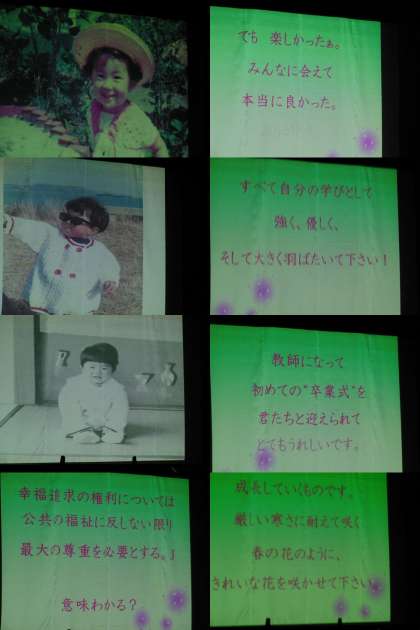 でも 楽しかったぁ。
みんなに会えて
本当に良かった。
すべて自分の学びとして
強く、優しく、
そして大きく羽ばたいて下さい！
教師になって
初めての“卒業式”を
君たちと迎えられて
とてもうれしいです。
幸福追求の権利については
公共の福祉に反しない限り
最大の尊重を必要とする。』
意味わかる？
成長していくものです。
厳しい寒さに耐えて咲く
春の花のように、
きれいな花を咲かせて下さい